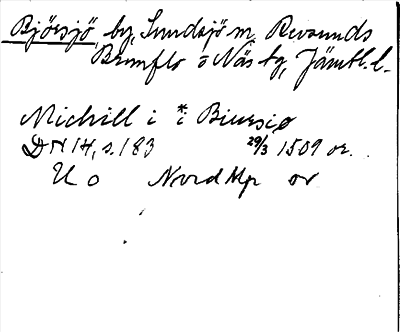 Björsjö by, Sundsjö sn, Revsunds
Brunflo o Näs tg, Jämtl. l.
Michill i * i Biursiø
DN 14, s. 183 29/3 1509 or.
U o Nord Kp or